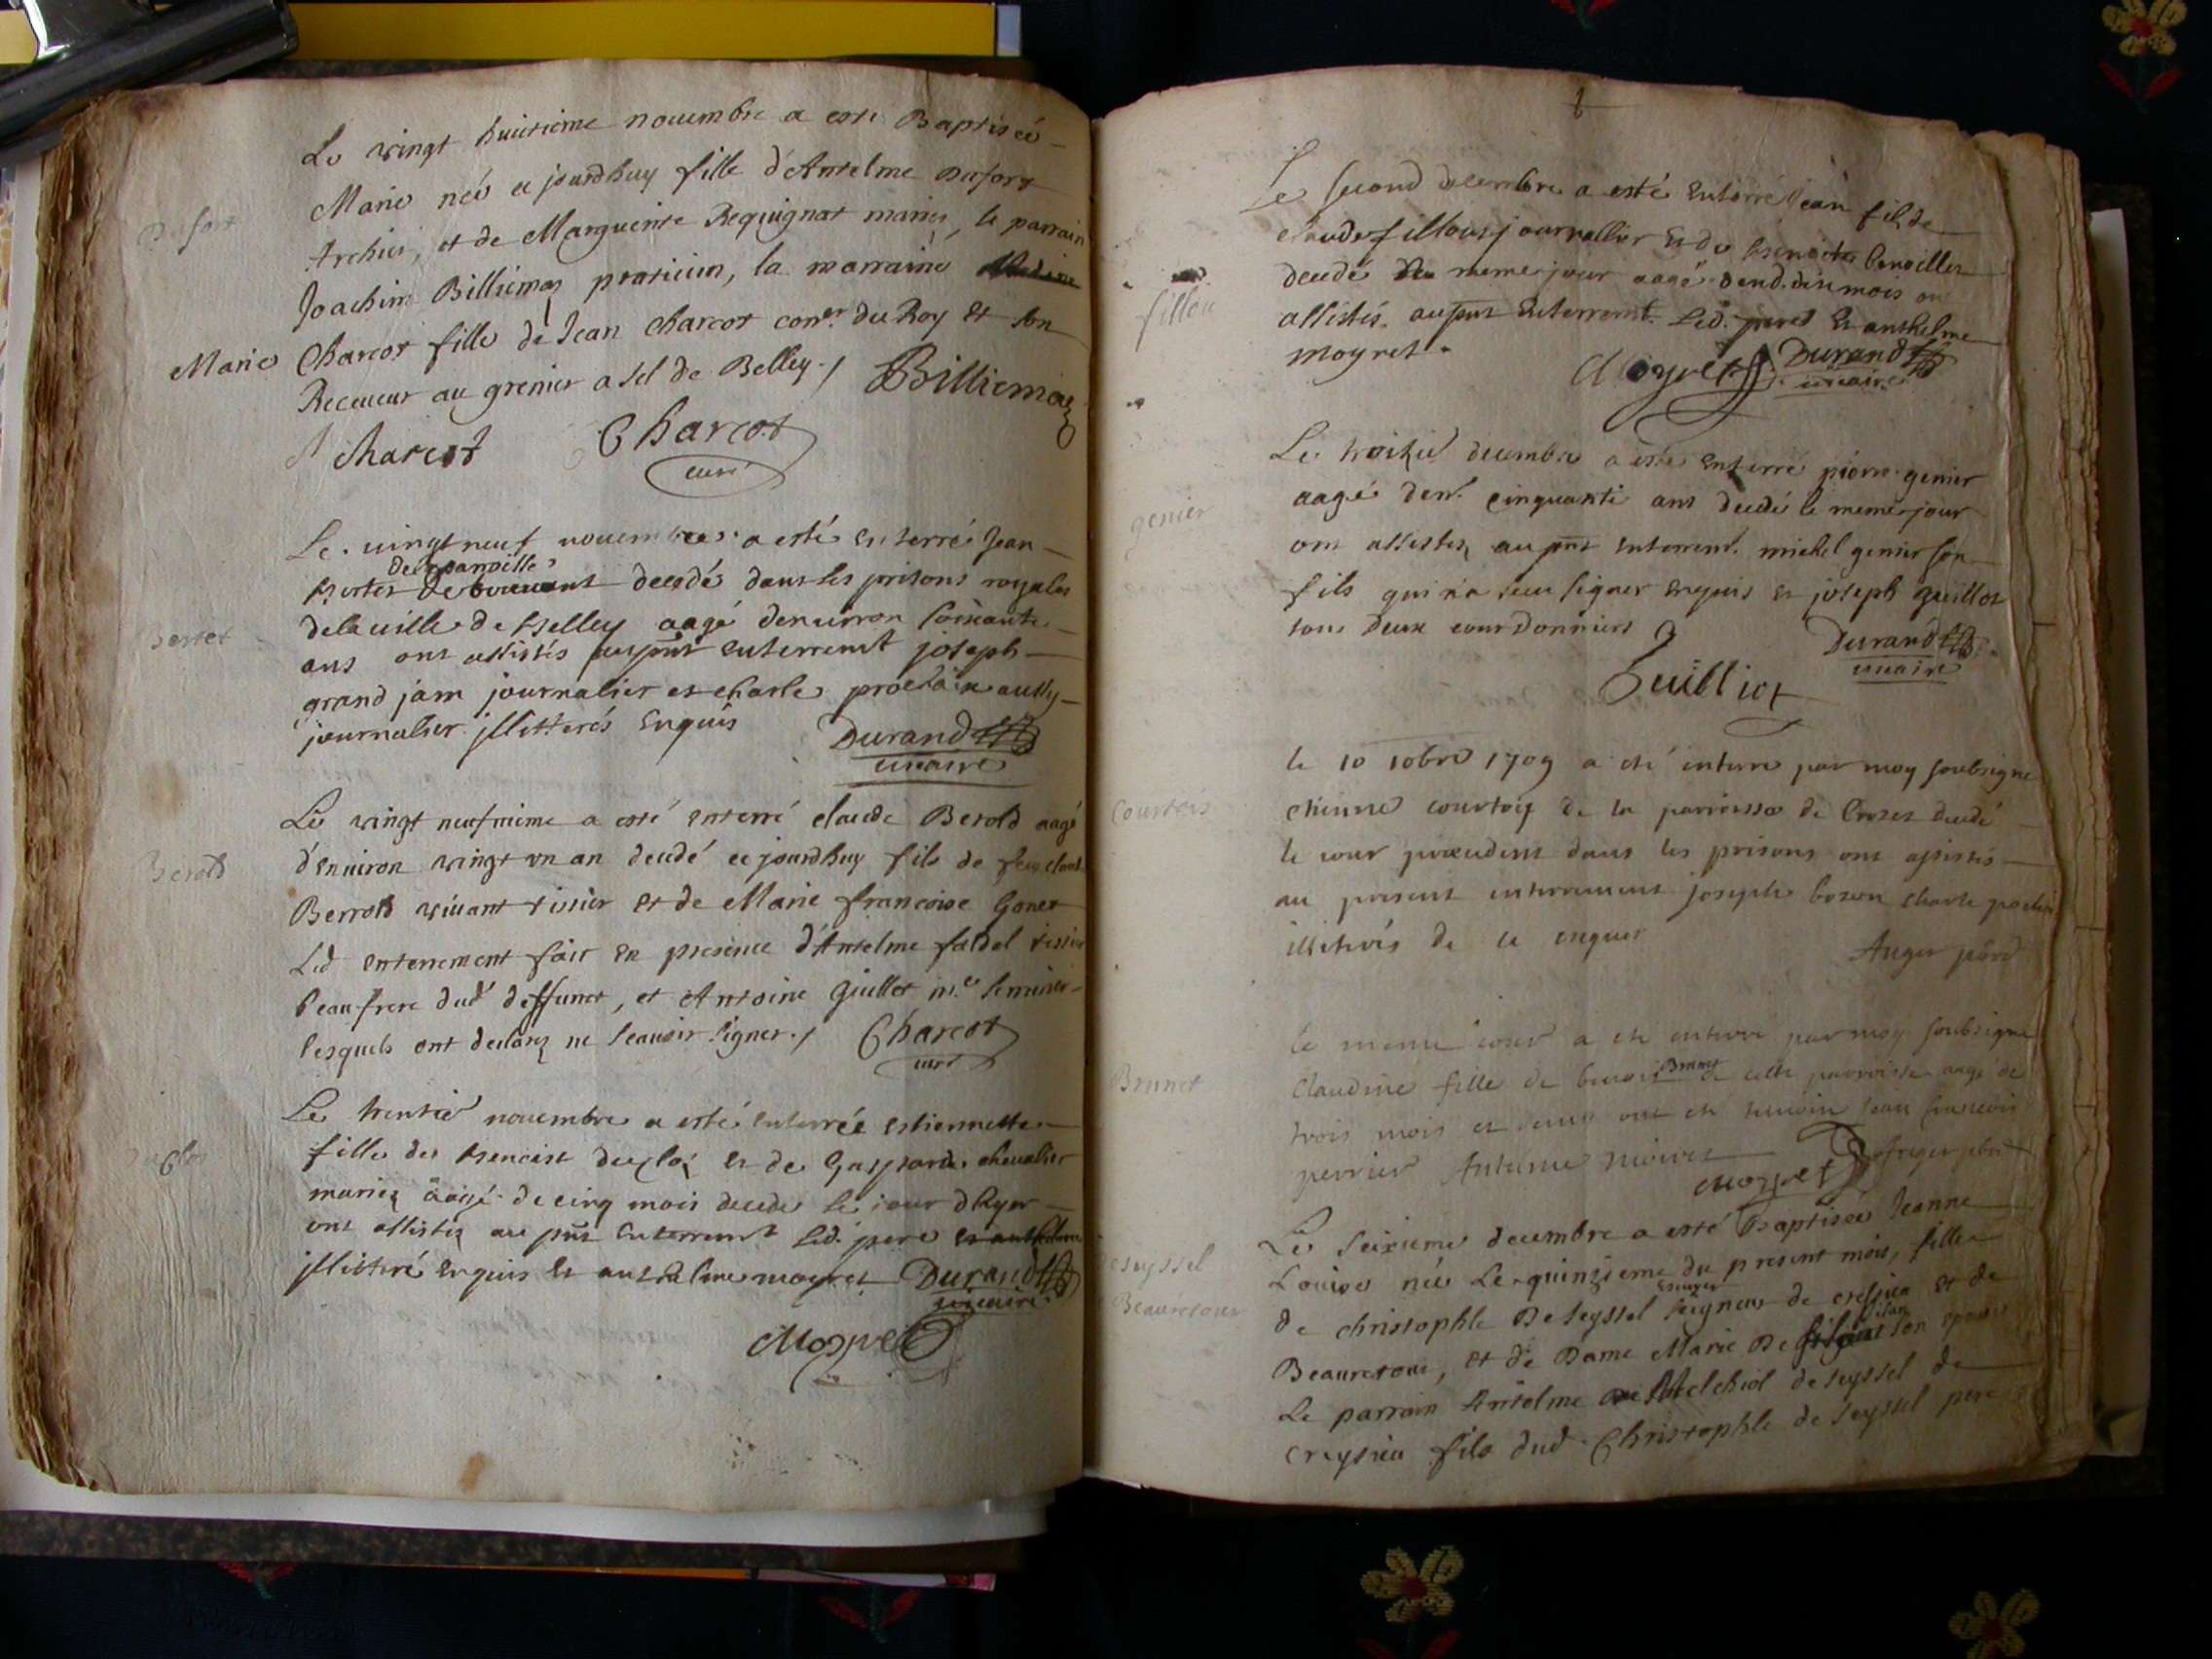 Le vingt huitieme nouembre a esté Baptisée
Marie née ce jourdhuy fille d'Antelme Dufort
Dufort
Archier, et de Marguerite Requignat mariés, le parrain
Joachim Billiemaz praticien, la marraine
Marie Charcot fille de Jean Charcot coner. du Roy et son
Receueur au grenier a sel de Belley./ Billiemaz
Charcot Charcot
curé
Le vingt neuf nouembre a esté enterré Jean
decedé dans les prisons royales
de la ville de Belley aagé denuiron soixante
Berret
ans ont assistés au pnt enterremt joseph
grand jam journalier et charle aussy
journalier jllitterés enquis Durand
vicaire
Le vingt neufuieme a esté enterré claude Berold aagé
d'enuiron vingt vn an decedé ce jourdhuy fils de feu claude
Berold
Berrold viuant tissier et de Marie francoise Gonet
Led enterrement fait en presence d'Antelme faldel tissier
beaufrere dud deffunct, et Antoine Guillot
lesquels ont declarez ne scauoir signer./ Charcot
curé
Le trentie nouembre a esté enterrée estiennette
fille de benoist duclos et de Gasparde cheualier
Duclos
mariez aagé de cinq mois decedee le jour d'hyer
ont assistez au pnt enterremt led. pere
jllitteré enquis et anthelme moyret Durand
vicaire
Moyret
Le second decembre a esté enterré Jean fils de
claude fillou journallier et de
fillou
decedé du meme jour aagé dix mois ont
assistés au pnt enterremt. Led. pere et anthelme
moyret. Moyret Durand
vicaire
Le troisie decembre a esté enterré pierre genier
aagé denv. cinquante ans decedé le meme jour
genier
ont assistez au pnt enterremt. michel genier son
fils qui n'a sceu signer enquis et joseph guillot
tous deux courdonniers Durand
vicaire
Guilliot
le 10 10bre 1709 a eté enterré par moy soubsigné
Courtois
etienne courtois de la parroisse de decedé
le jour precedent dans les prisons ont assistés
au present enterrement joseph bozon charle
illiterés de ce enquis
Auger
le meme jour a eté enterré par moy soubsigné
Brunet
Claudine fille de benoit Brunet de cette parroisse aagé de
trois mois et demy ont eté temoin Jean francois
perrier Antelme moiret Auger
Moyret
Le seizieme decembre a esté Baptisée Jeanne
Seyssel
Louise née Le quinzieme du present mois, fille
Escuyer
de christophle De Seyssel seigneur de et de
Beauretour
Beauretour, et de Dame Marie De son epouse
Le parrain Antelme Melchiol de seyssel de
creysieu fils dud. Christophle de Seyssel pere